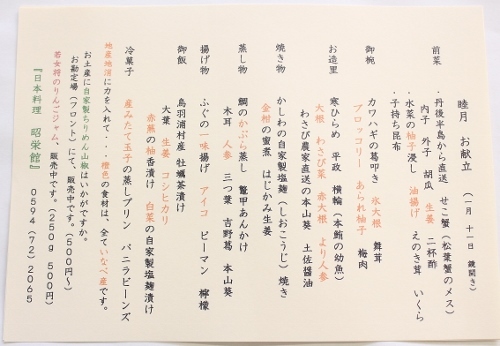 睦月 お献立 (一月 十一日 鏡開き)
前菜
・丹後半島から直送 せこ蟹(松葉蟹のメス)
内子 外子 胡瓜 生姜 二杯酢
・水菜の柚子浸し 油揚げ えのき茸 いくら
・子持ち昆布
御椀
カワハギの葛叩き 氷大根 舞茸
ブロッコリー あられ柚子 梅肉
お造里
寒ひらめ 平政 横輪(本鮪の幼魚)
大根 わさび菜 赤大根 より人参
わさび農家直送の本山葵 土佐醤油
焼き物
かしわの自家製塩麹(しおこうじ)焼き
金柑の蜜煮 はじかみ生姜
蒸し物
鯛のかぶら蒸し 鼈甲あんかけ
木耳 人参 三つ葉 吉野葛 本山葵
揚げ物
ふぐの一味揚げ アイコ ピーマン 檸檬
御飯
鳥羽浦村産 牡蠣茶漬け
大葉 生姜 コシヒカリ
赤蕪の柚香漬け 白菜の自家製塩麹漬け
冷菓子
産みたて玉子の蒸しプリン バニラビーンズ
地産地消に力を入れて・・・橙色の食材は、全ていなべ産です。
お土産に自家製ちりめん山椒はいかがですか。
お勘定場(フロント)にて、販売中です。(500円~)
若女将のりんごジャム、販売中です。(250g 500円)
『日本料理 昭栄館』 0594(72)2065